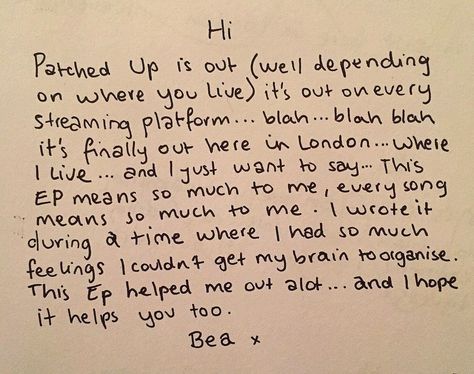 Hi
Patched Up is out (well depending
on where you live) it's out on every
streaming platform... blah... blah blah
it's finally out here in London... where
I live... and I just want to say... This
EP means so much to me, every song
means so much to me. I wrote it
during a time where I had so much
feelings I couldn't get my brain to organise.
This Ep helped me out alot... and I hope
it helps you too.
Bea x